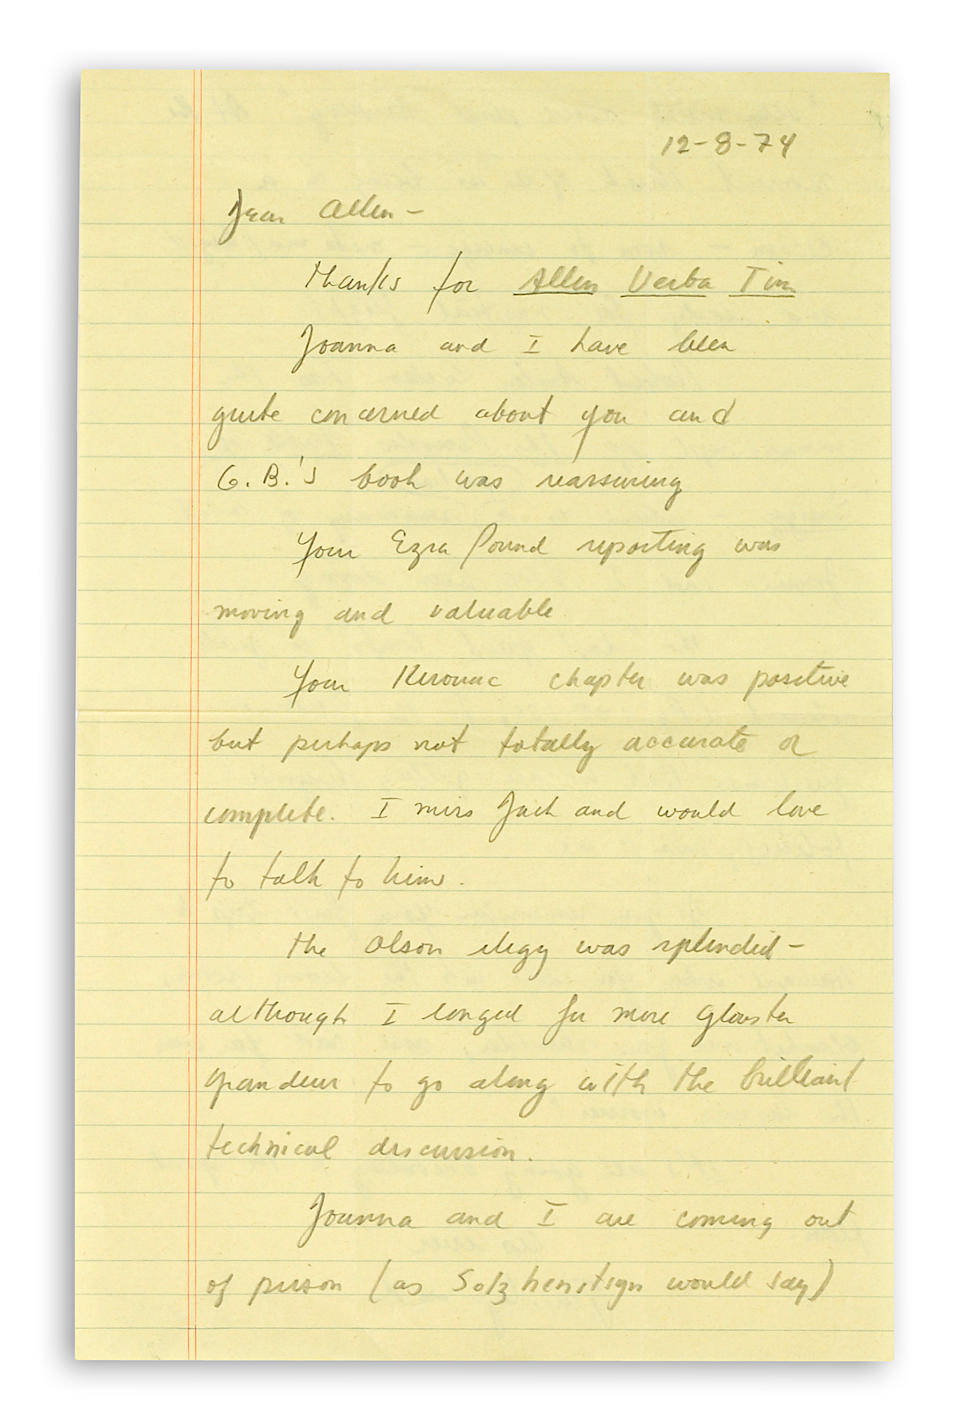 12-8-74
Dear Allen –
Thanks for Allen Verba Tim
Joanna and I have been
quite concerned about you and
G.B.'s book was reassuring
Your Ezra Pound reporting was
moving and valuable
Your Kerouac chapter was positive
but perhaps not totally accurate or
complete. I miss Jack and would love
to talk to him.
The Olson elegy was splendid –
although I longed for more Gloster
grandeur to go along with the brilliant
technical discussion.
Joanna and I are coming out
of prison (as Solzhenitsyn would say)